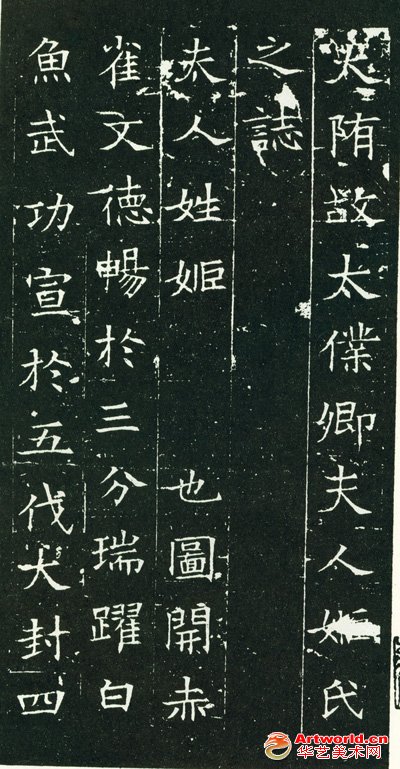 大陏故太僕卿夫人姬氏
之誌
夫人姓姬 也圖開赤
雀文德暢於三分瑞躍白
魚武功宣於五伐大封四
Artworld.cn
华艺美术网